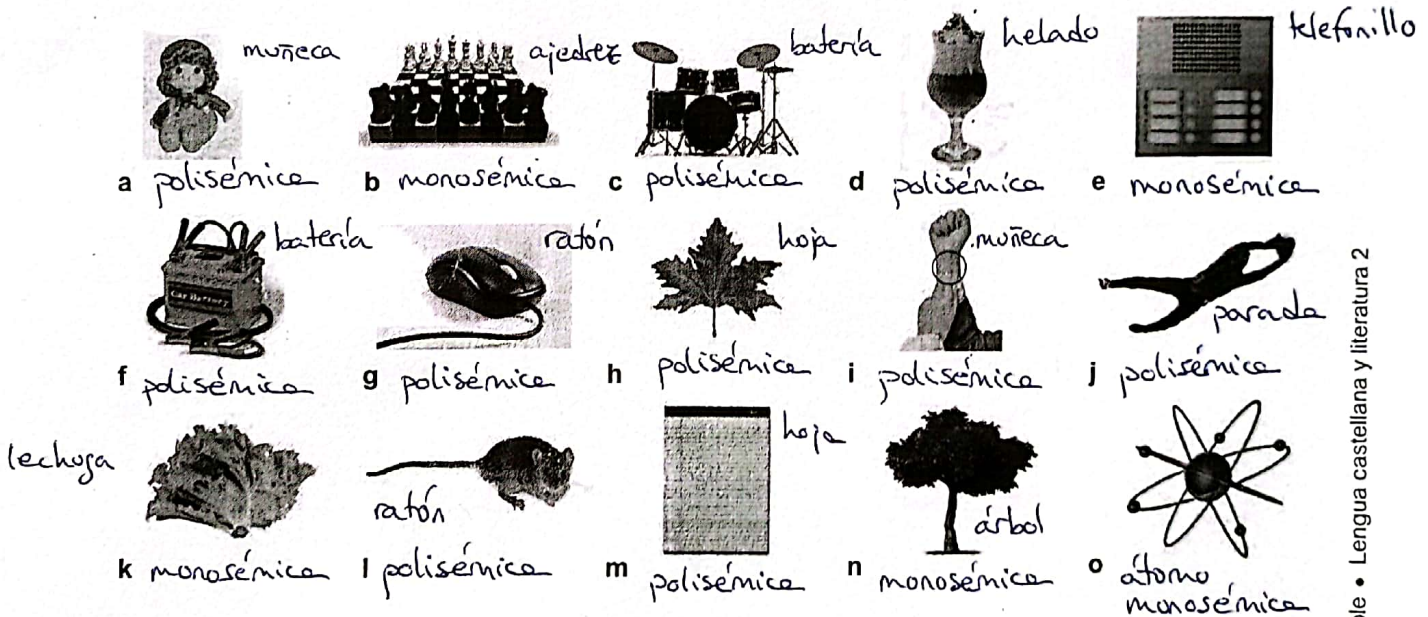 muñeca
a polisémica
ajedrez
b monosémica
batería
c polisémica
helado
d polisémica
telefonillo
e monosémica
batería
Car Battery
f polisémica
ratón
g polisémica
hoja
h polisémica
muñeca
i polisémica
parada
j polisémica
lechuga
k monosémica
ratón
l polisémica
hoja
m polisémica
árbol
n monosémica
o átomo
monosémica
• Lengua castellana y literatura 2